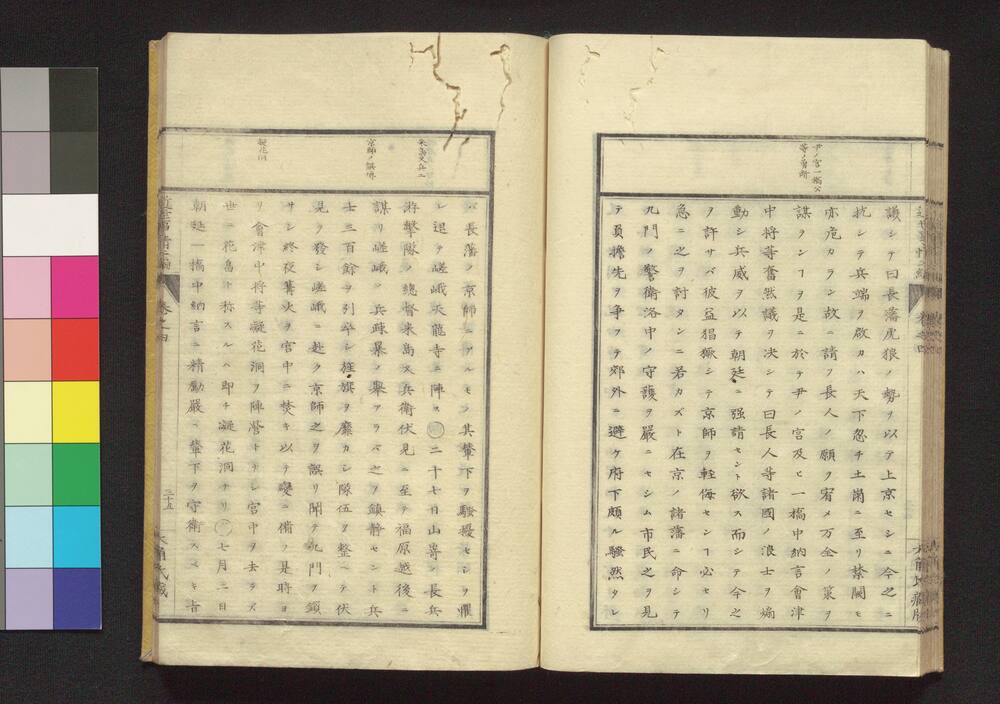 尹ノ宮一橋公
等ノ勇断
議シテ曰長藩虎狼ノ勢ヲ以テ上京セシニ今之ニ
抗シテ兵端ヲ啟カハ天下忽チ土崩ニ至リ禁闕モ
亦危カラン故ニ請フ長人ノ願ヲ宥メ万全ノ策ヲ
謀ランヿヲ是ニ於テ尹ノ宮及ヒ一橋中納言會津
中将等奮然議ヲ决シテ曰長人等諸國ノ浪士ヲ煽
動シ兵威ヲ以テ朝廷ニ强請セント欲ス而シテ今之
ヲ許サバ彼益猖獗シテ京師ヲ輕侮センヿ必セリ
急ニ之ヲ討タンニ若カズト在京ノ諸藩ニ命シテ
九門ノ警衛洛中ノ守護ヲ嚴ニセシム市民之ヲ見
テ負擔先ヲ争フテ郊外ニ避ケ府下頗ル騒然タレ
来島又兵エ
京師ノ誤傳
凝花洞
バ長藩ノ京師ニアルモノ其輦下ヲ騒擾セシヲ懼
レ退テ嵯峨天龍寺ニ陣ス○二十七日山嵜ノ長兵
遊撃隊ノ總督来島又兵衛伏見ニ至テ福原越後ニ
謀リ嵯峨ノ兵疎暴ノ舉アリバ之ヲ鎮静セント兵
士三百餘ヲ引卒シ旌旗ヲ靡カシ隊伍ヲ整ヘテ伏
見ヲ發シ嵯峨ニ赴ク京師之ヲ誤リ聞テ九門ヲ鎖
サシ終夜篝火ヲ宮中ニ焚キ以テ變ニ備フ是時ヨ
リ會津中将等凝花洞ヲ陣営トナシ宮中ヲ去ラズ
世ニ花畠ト称スルハ即チ凝花洞ナリ○七月二日
朝廷一橋中納言ニ精勵嚴ニ輦下ヲ守衛スベキ㫖
巻之四
三十五